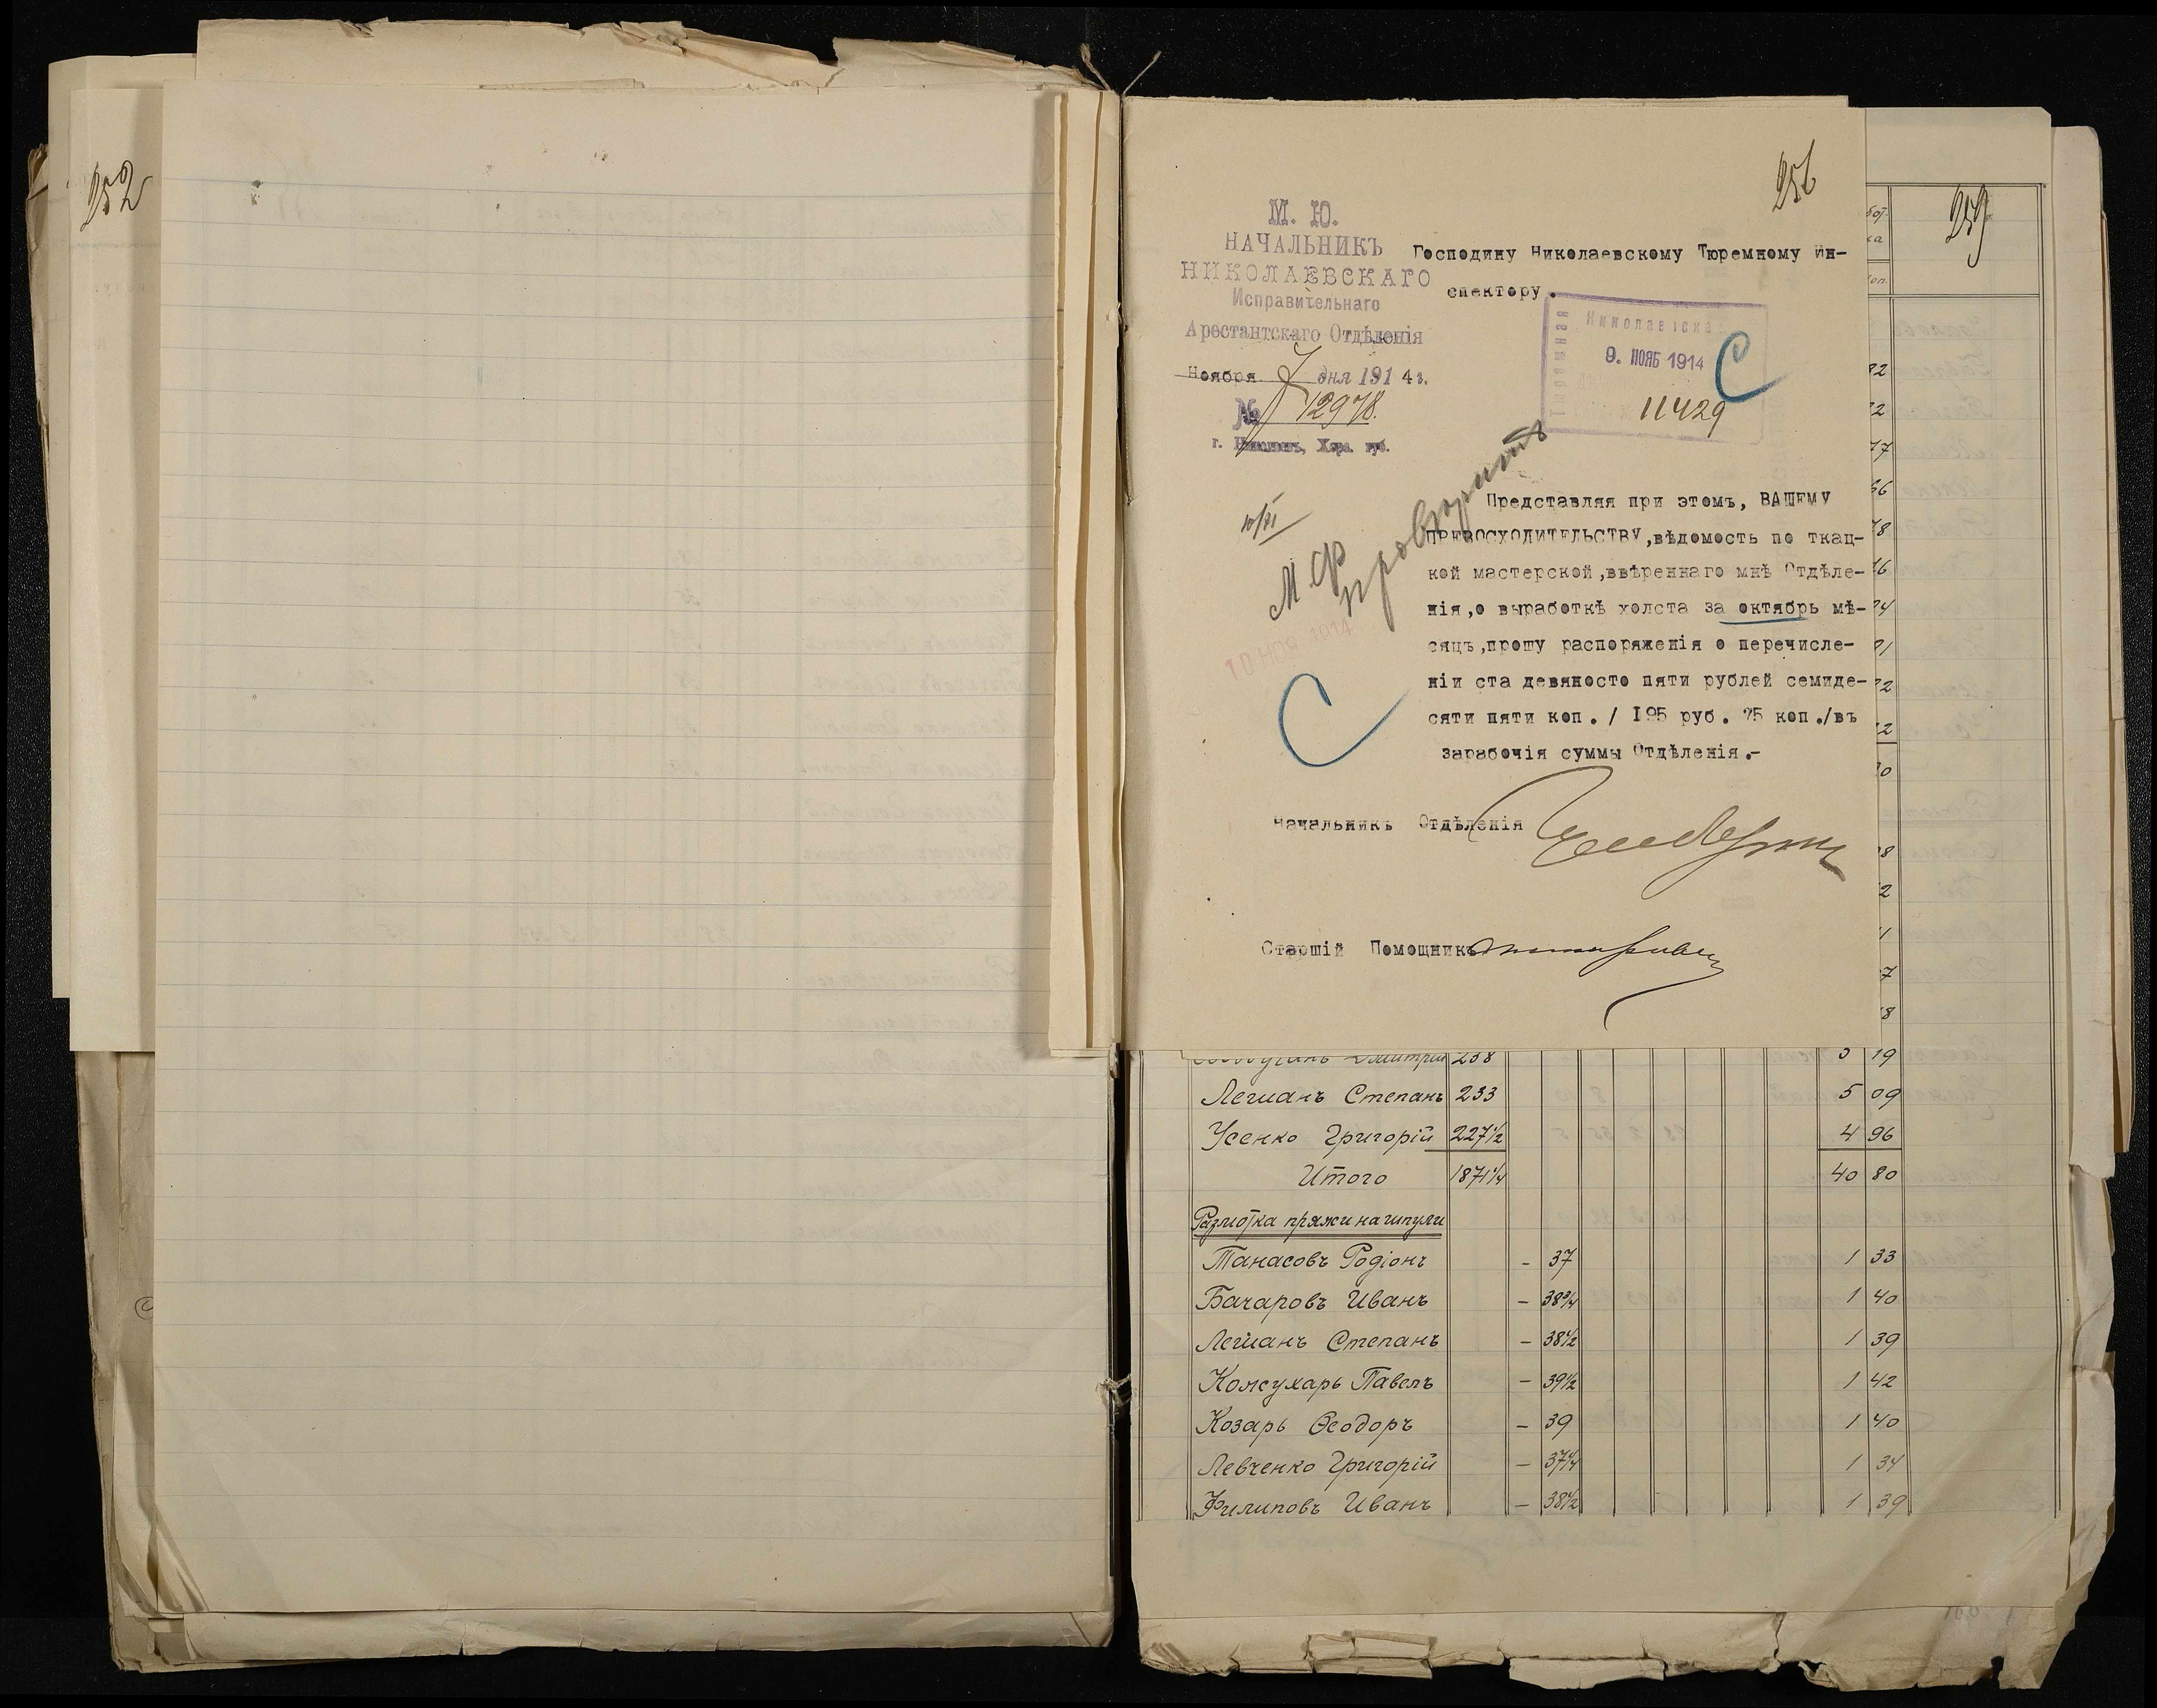 252
256
259
М. Ю.
НАЧАЛЬНИКЪ
НИКОЛАЕВСКАГО
Исправительнаго
Арестантскаго Отдѣленія
Ноября 7 дня 1914 г.
№ 12978.
г. Николаевъ, Херс. губ.
Господину Николаевскому Тюремному Ин-
спектору.
Николаевска
Тюремная
9. НОЯБ 1914
11429
С
10/XI
М. Ф.
провѣрить
10 НОЯ 1914
С
Представляя при этомъ, ВАШЕМУ
ПРЕВОСХОДИТЕЛЬСТВУ,вѣдомость по ткац-
кой мастерской,ввѣреннаго мнѣ Отдѣле-
нія,о выработкѣ холста за октябрь мѣ-
сяцъ,прошу распоряженія о перечисле-
ніи ста девяносто пяти рублей семиде-
сяти пяти коп./ I95 руб. 75 коп./въ
зарабочія суммы Отдѣленія.-
Начальникъ Отдѣленія
Старшій Помощникъ
Дмитрій 238 5 19
Легианъ Степанъ 233 5 09
Усенко Григорій 227½ 4 96
Итого 1871¼ 40 80
Размотка пряжи на шпули
Танасовъ Родіонъ - 37 1 33
Бачаровъ Иванъ - 38¾ 1 40
Легианъ Степанъ - 38½ 1 39
Кожухарь Павелъ - 39½ 1 42
Козарь Ѳеодоръ - 39 1 40
Левченко Григорій - 37¼ 1 34
Филиповъ Иванъ - 38½ 1 39